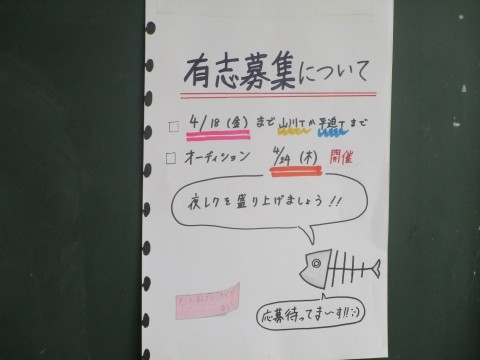 有志募集について
4/18(金)まで 山川Tか平迫Tまで
オーディション 4/24(木) 開催
夜レクを盛り上げましょう!!
応募待ってま〜す!!:-)